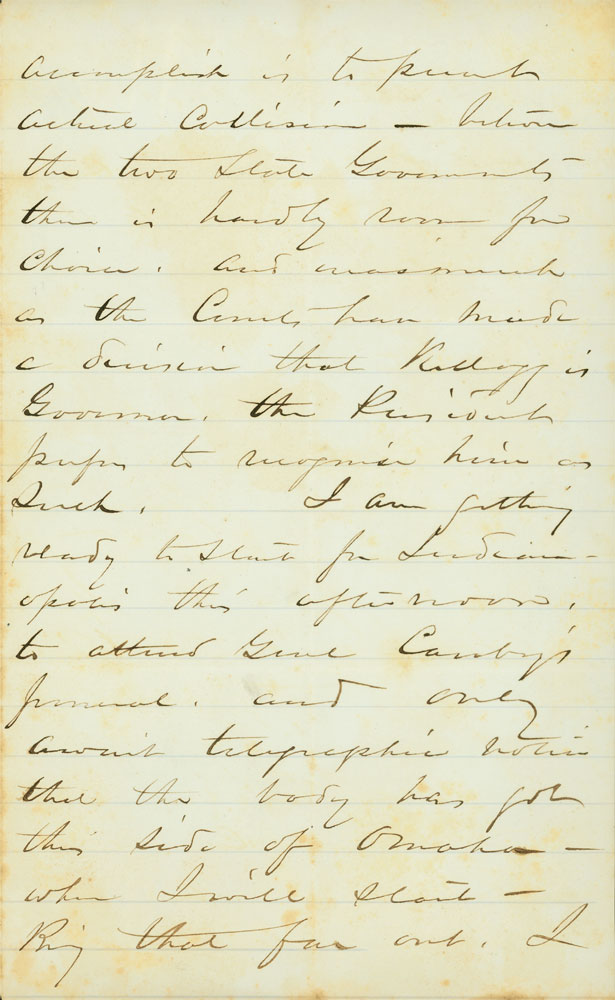 accomplish is to prevent
actual Collision — between
the two State Governments
there is hardly room for
choice. and inasmuch
as the Courts have made
a decision that Kellogg is
Governor, the President
prefers to recognise him as
such. I am getting
ready to start for Indian-
opolis this afternoon,
to attend Genl Canby's
funeral. and only
await telegraphic notice
that the body has got
this side of Omaha —
when I will start —
that far out. I